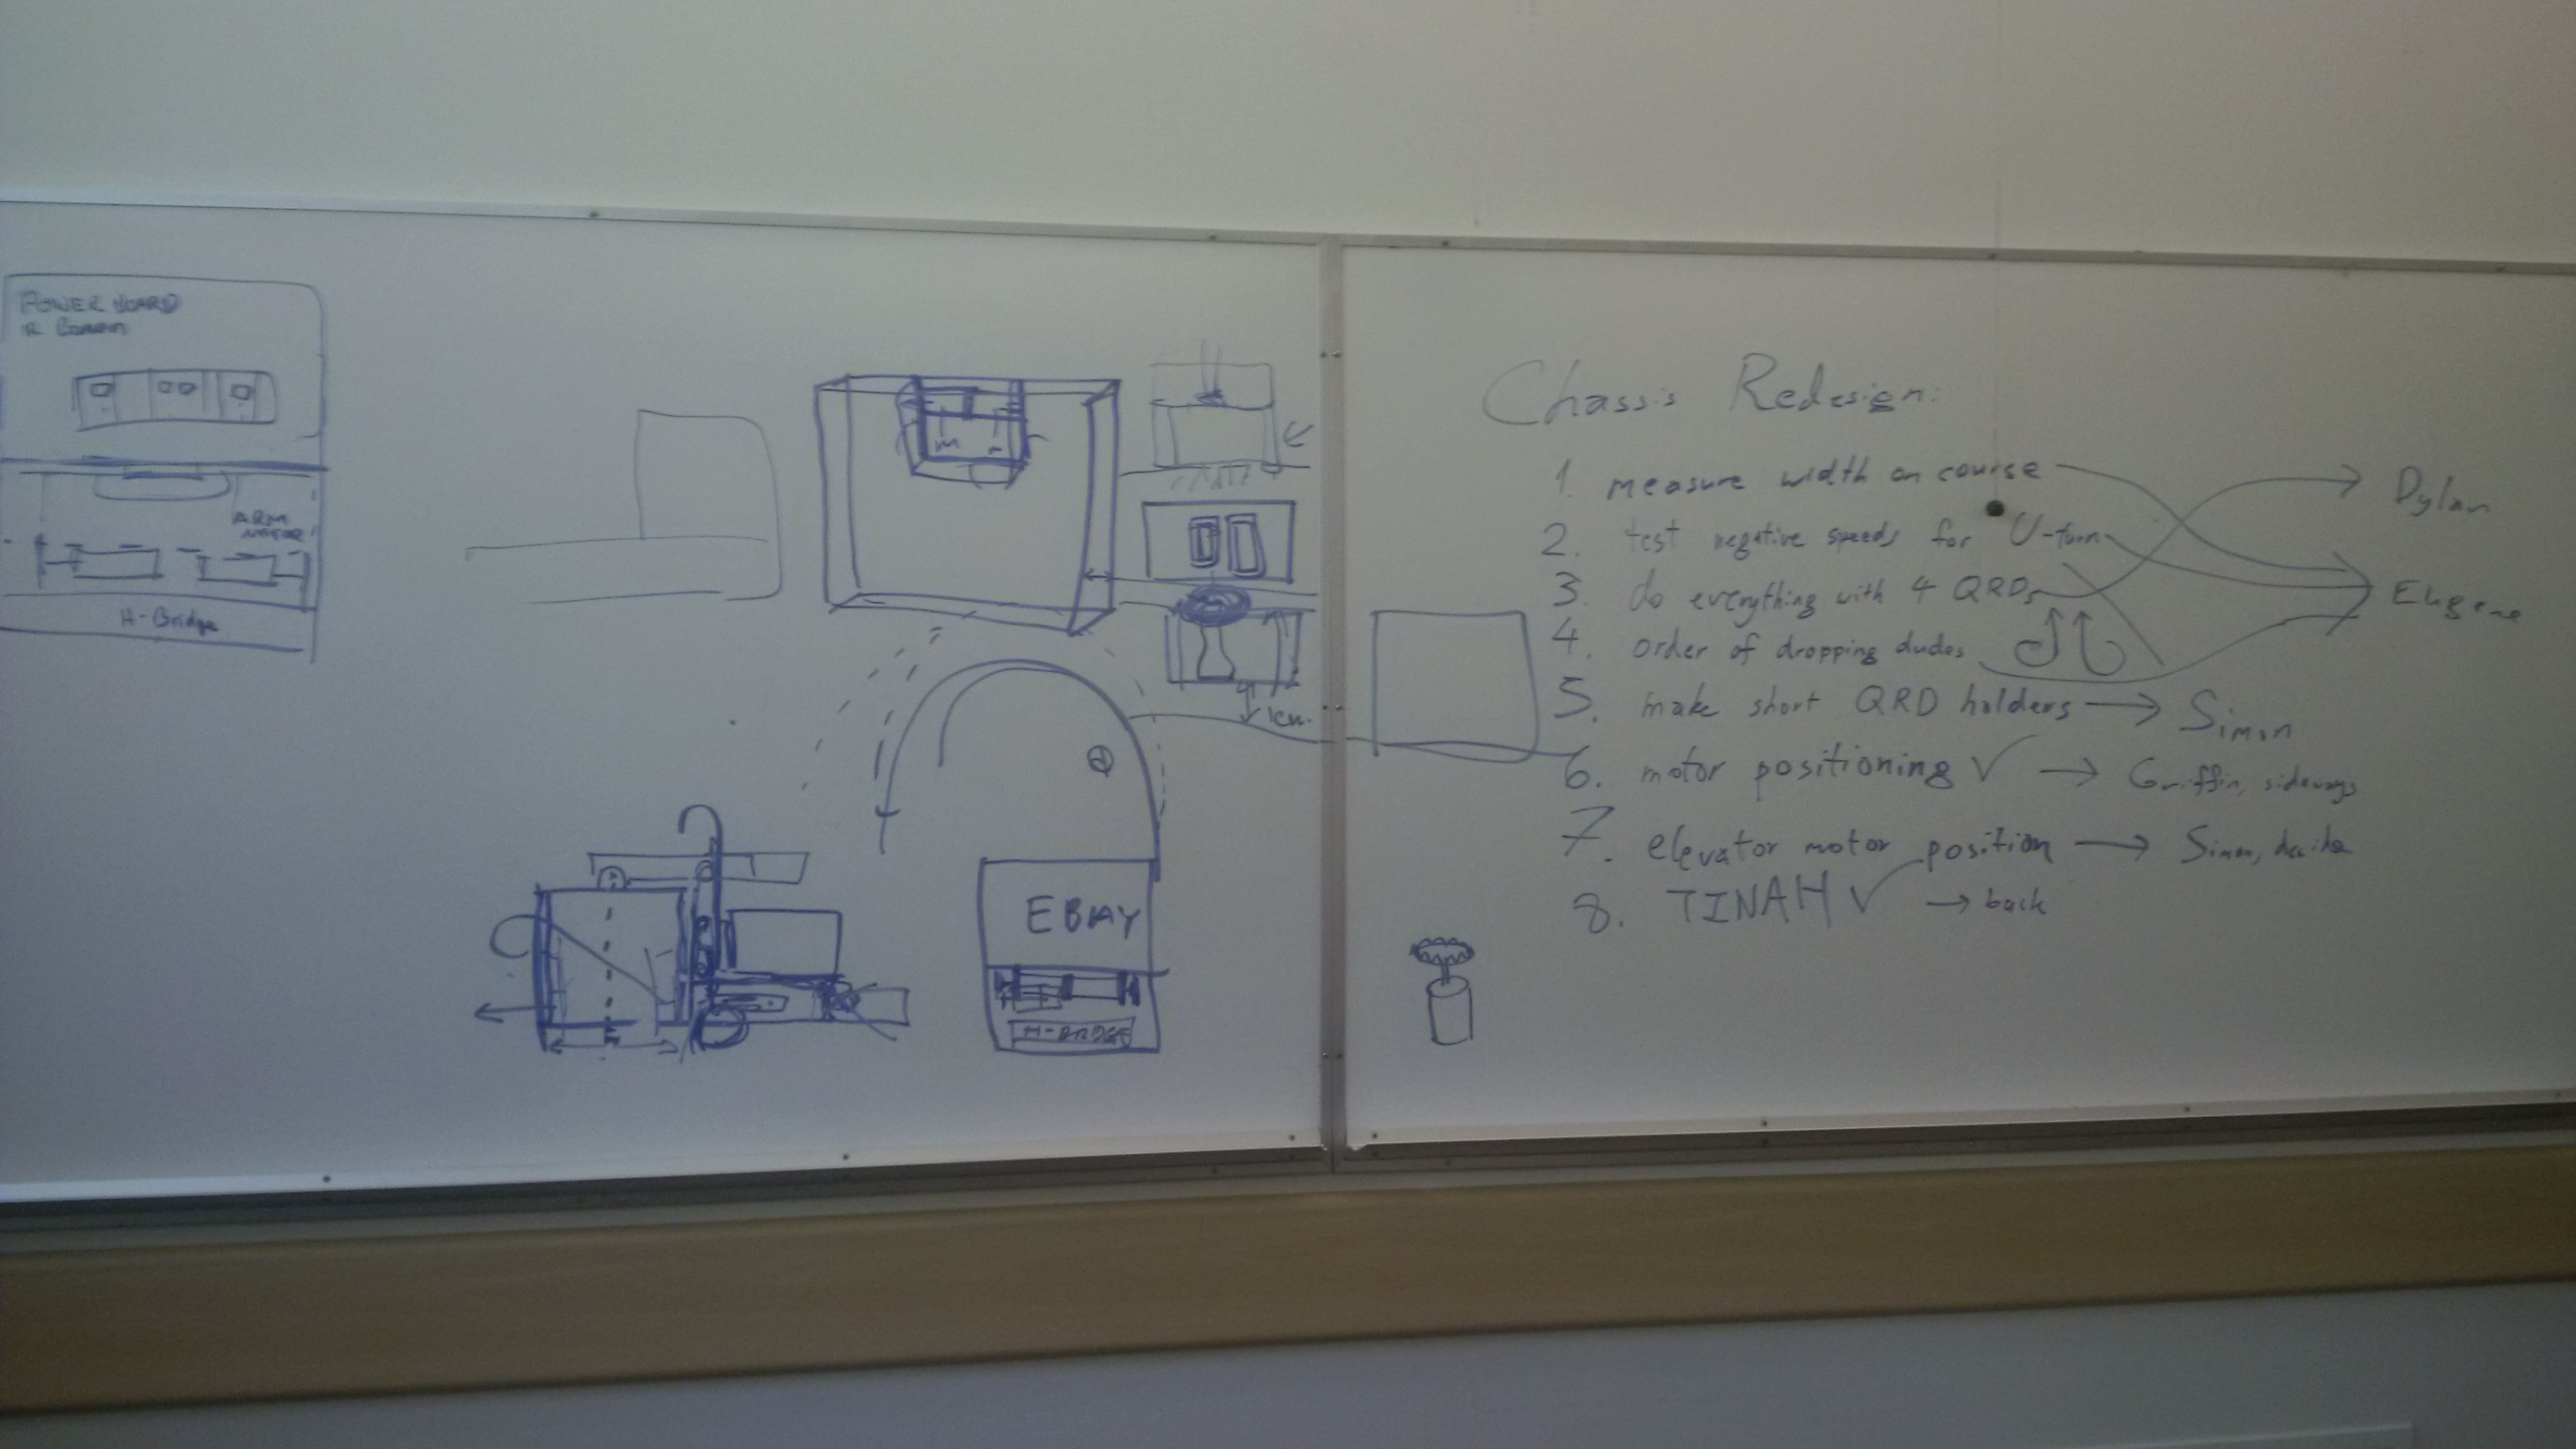 POWER BOARD
IR Comm
ARM
MOTOR
H-Bridge
1cm.
EBAY
H-BRIDGE
Chassis Redesign:
1. measure width on course
2. test negative speeds for U-turn
3. do everything with 4 QRDs
4. order of dropping dudes
5. make short QRD holders → Simon
6. motor positioning ✓ → Griffin, sideways
7. elevator motor position → Simon,
8. TINAH ✓ → back
Dylan
Eugene